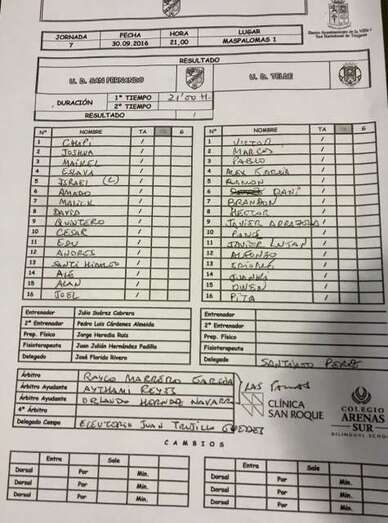 JORNADA FECHA HORA LUGAR
7 30.09.2016 21,00 MASPALOMAS 1
RESULTADO
U. D. SAN FERNANDO U. D. TELDE
DURACIÓN
1º TIEMPO 21'00 H.
2º TIEMPO
RESULTADO /
Nº NOMBRE TA 6
1 CHUPI /
2 JOSHUA /
3 MAIKEL /
4 ESLAVA /
5 ISRAEL (C) /
6 AMADO /
7 MALICK /
8 DAVID /
9 QUINTERO /
10 CESAR /
11 EDU /
12 ANDRES /
13 SANTI HIDALGO /
14 ALE /
15 ALAN /
16 JOEL /
Nº NOMBRE TA 6
1 VICTOR /
2 MARCOS /
3 PABLO /
4 ALEX GARCIA /
5 RAMON /
6 DANI /
7 BRANDON /
8 HECTOR /
9 JAVIER /
10 PONCE /
11 JAVIER /
12 ALFONSO /
13 /
14 JUANMA /
15 OWEN /
16 PITA /
Entrenador Julio Suárez Cabrera
2º Entrenador Pedro Luis Cárdenes Almeida
Prep. Físico Jorge Heredia Ruiz
Fisioterapeuta Juan Julián Hernández Padilla
Delegado José Florido Rivero
Entrenador
2º Entrenador
Prep. Físico
Fisioterapeuta
Delegado SANTIAGO PEREZ
Árbitro RAYCO MARRERO GARCIA
Árbitro Ayudante AYTHAMI REYES
Árbitro Ayudante ORLANDO HERNDE NAVARRO
4º Árbitro
LAS PALMAS
Delegado Campo ELEUTERIO JUAN TRUJILLO
CLÍNICA
SAN ROQUE
COLEGIO
ARENAS
SUR
BILINGUAL SCHOOL
CAMBIOS
Entra Sale
Dorsal Por Min.
Dorsal Por Min.
Dorsal Por Min.
Entra Sale
Dorsal Por Min.
Dorsal Por Min.
Dorsal Por Min.